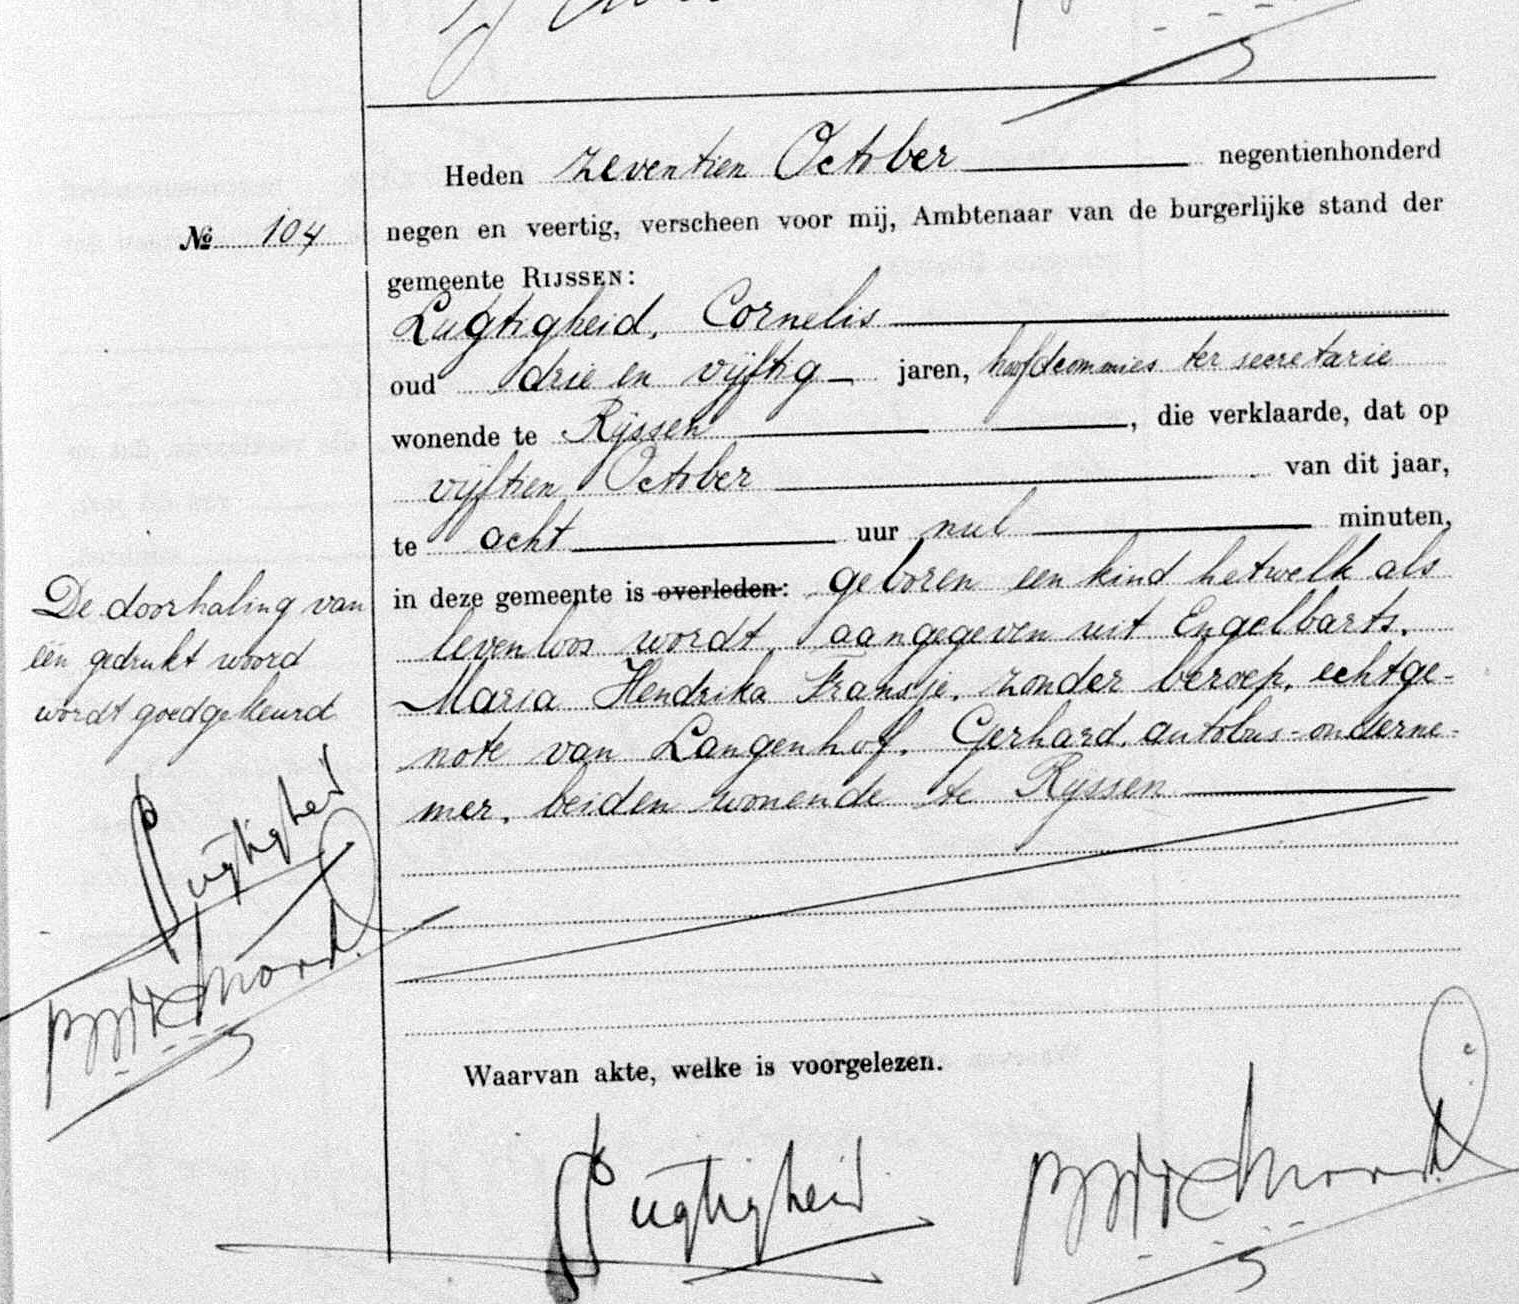 Heden zeventien October negentienhonderd
№ 104
negen en veertig, verscheen voor mij, Ambtenaar van de burgerlijke stand der
gemeente RIJSSEN:
Lugtigheid, Cornelis
oud drie en vijftig jaren, hoofdcommies ter secretarie
wonende te Rijssen, die verklaarde, dat op
vijftien October van dit jaar,
te acht uur nul minuten,
in deze gemeente is overleden: geboren een kind hetwelk als
levenloos wordt aangegeven uit Engelbarts,
Maria Hendrika Fransje, zonder beroep, echtge-
note van Langenhof, Gerhard, autobus-onderne-
mer, beiden wonende te Rijssen
De doorhaling van
één gedrukt woord
wordt goedgekeurd
Lugtigheid
Waarvan akte, welke is voorgelezen.
Lugtigheid